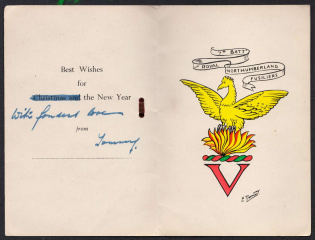 Best Wishes
for
Christmas and the New Year
With fondest love
from
Tommy.
9th BATT
ROYAL NORTHUMBERLAND
FUSILIERS
V